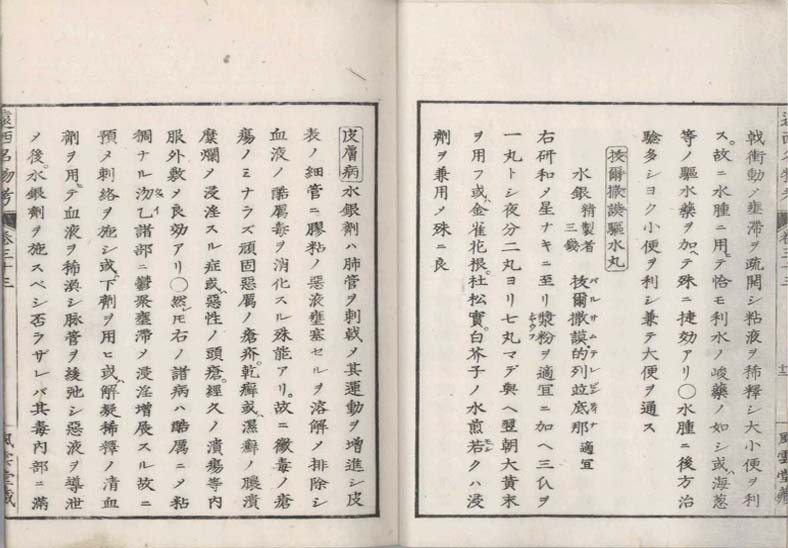 戟衝動メ壅滞ヲ疏開シ粘液ヲ稀釋シ大小便ヲ利
ス。故ニ水腫ニ用テ恰モ利水ノ峻藥ノ如シ或ハ海葱
等ノ驅水藥ヲ加ヘテ殊ニ捷効アリ〇水腫ニ後方治
驗多シヨク小便ヲ利シ兼テ大便ヲ通ス
抜爾撒謨驅水丸
水銀 精製者 三錢 抜爾撒謨的列並底那 適宜
バルサム テレビンテイナ
右研和メ星ナキニ至リ漿粉ヲ適宜ニ加ヘ三仏ヲ
一丸トシ夜分二丸ヨリ七丸マデ與ヘ翌朝大黄末
ヲ用フ或ハ金雀花根。杜松實。白芥子ノ水煎若クハ浸
劑ヲ兼用メ殊ニ良
皮膚病 水銀劑ハ肺管ヲ刺戟メ其運動ヲ增進シ皮
表ノ細管ニ膠粘ノ惡液壅塞セルヲ溶解メ排除シ
血液ノ酷厲毒ヲ消化スル殊能アリ。故ニ黴毒ノ瘡
瘍ノミナラズ頑固惡厲ノ瘡疥。乾癬或ハ濕癬ノ膿潰
糜爛メ浸淫スル症或ハ惡性ノ頭瘡。經久ノ潰瘍等内
服外敷メ良効アリ〇然モ右ノ諸病ハ酷厲ニメ粘
稠ナル汚乙諸部ニ鬱聚壅滞メ浸淫增展スル故ニ
預メ刺絡ヲ施シ或ハ下劑ヲ用ヒ或ハ解凝稀釋ノ清血
劑ヲ用テ血液ヲ稀渙シ脉管ヲ緩弛シ惡液ヲ導泄
メ後。水銀劑ヲ施スベシ否ラザレバ其毒内部ニ滿
遠西名物考 卷三十三
風雲堂藏